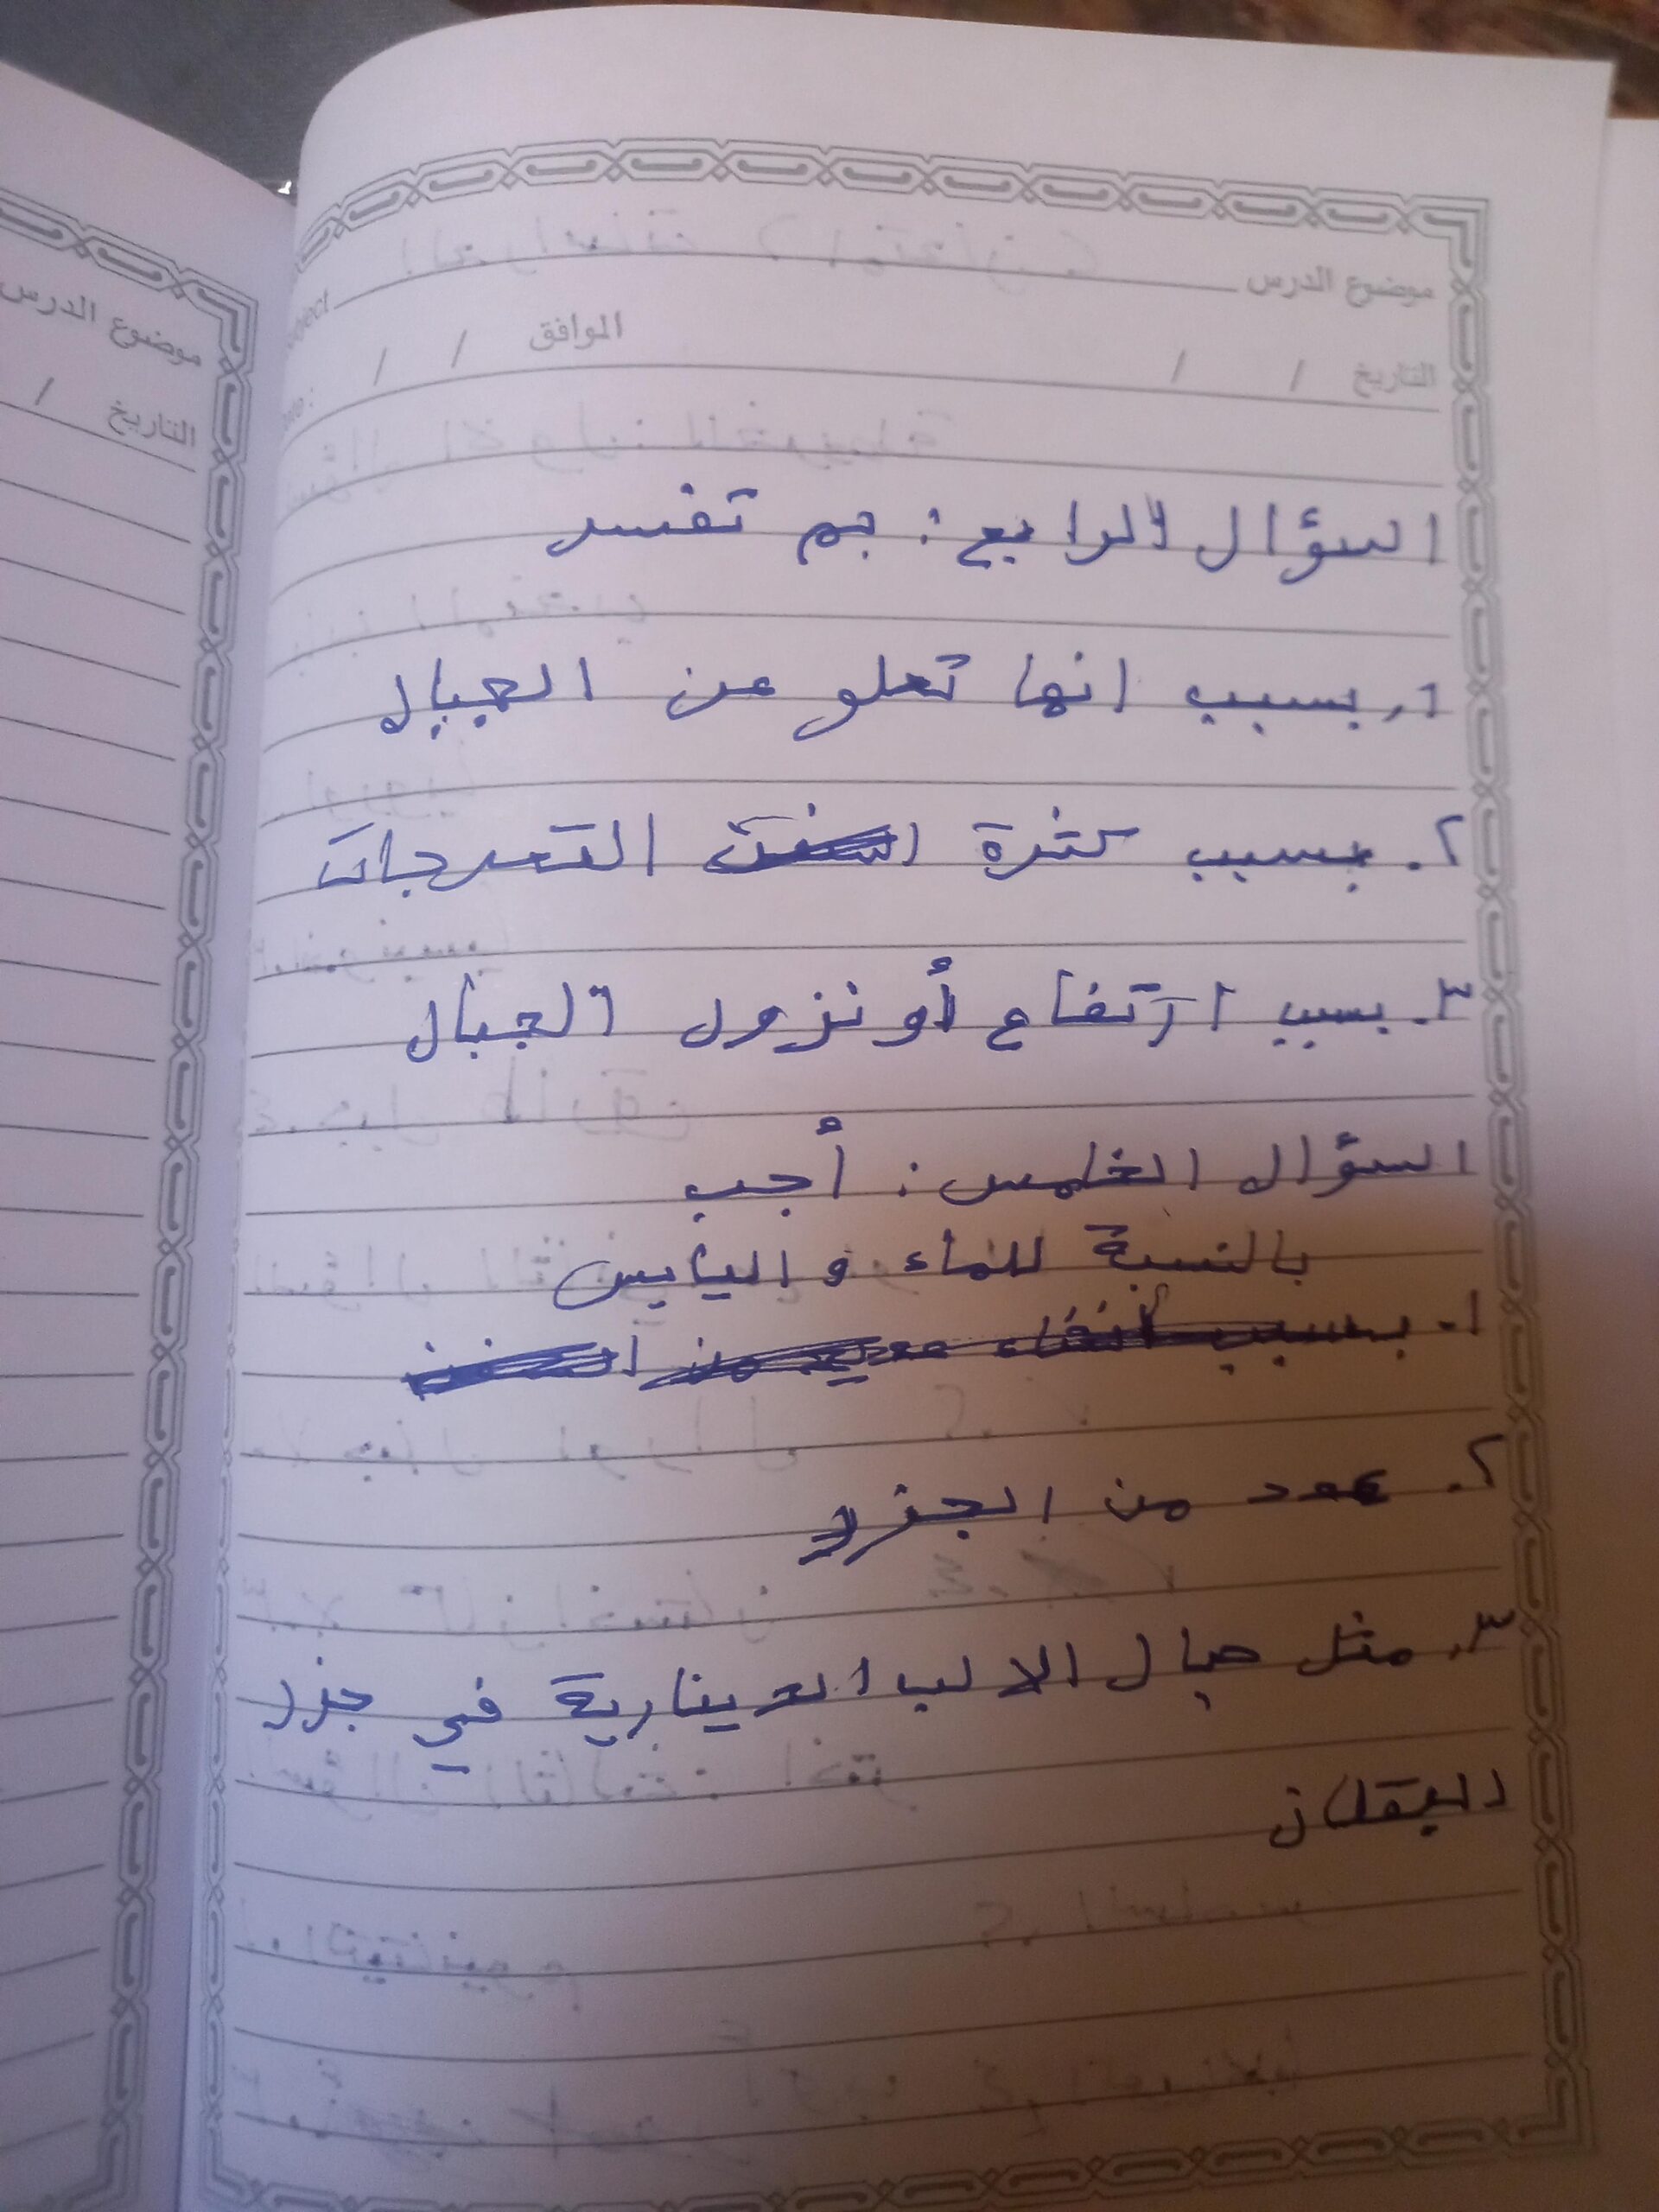 موضوع الدرس
التاريخ / / الموافق / /
السؤال الرابع: بم تفسر
١. بسبب انها تعلو عن الجبال
٢. بسبب كثرة التعرجات
٣. بسبب ارتفاع أو نزول الجبال
السؤال الخامس: أجب
بالنسبة للماء و اليابس
١. بسبب
٢. عدد من الجزر
٣. مثل جبال الالب الدينارية في جزر
البلقان
موضوع الدرس
التاريخ /